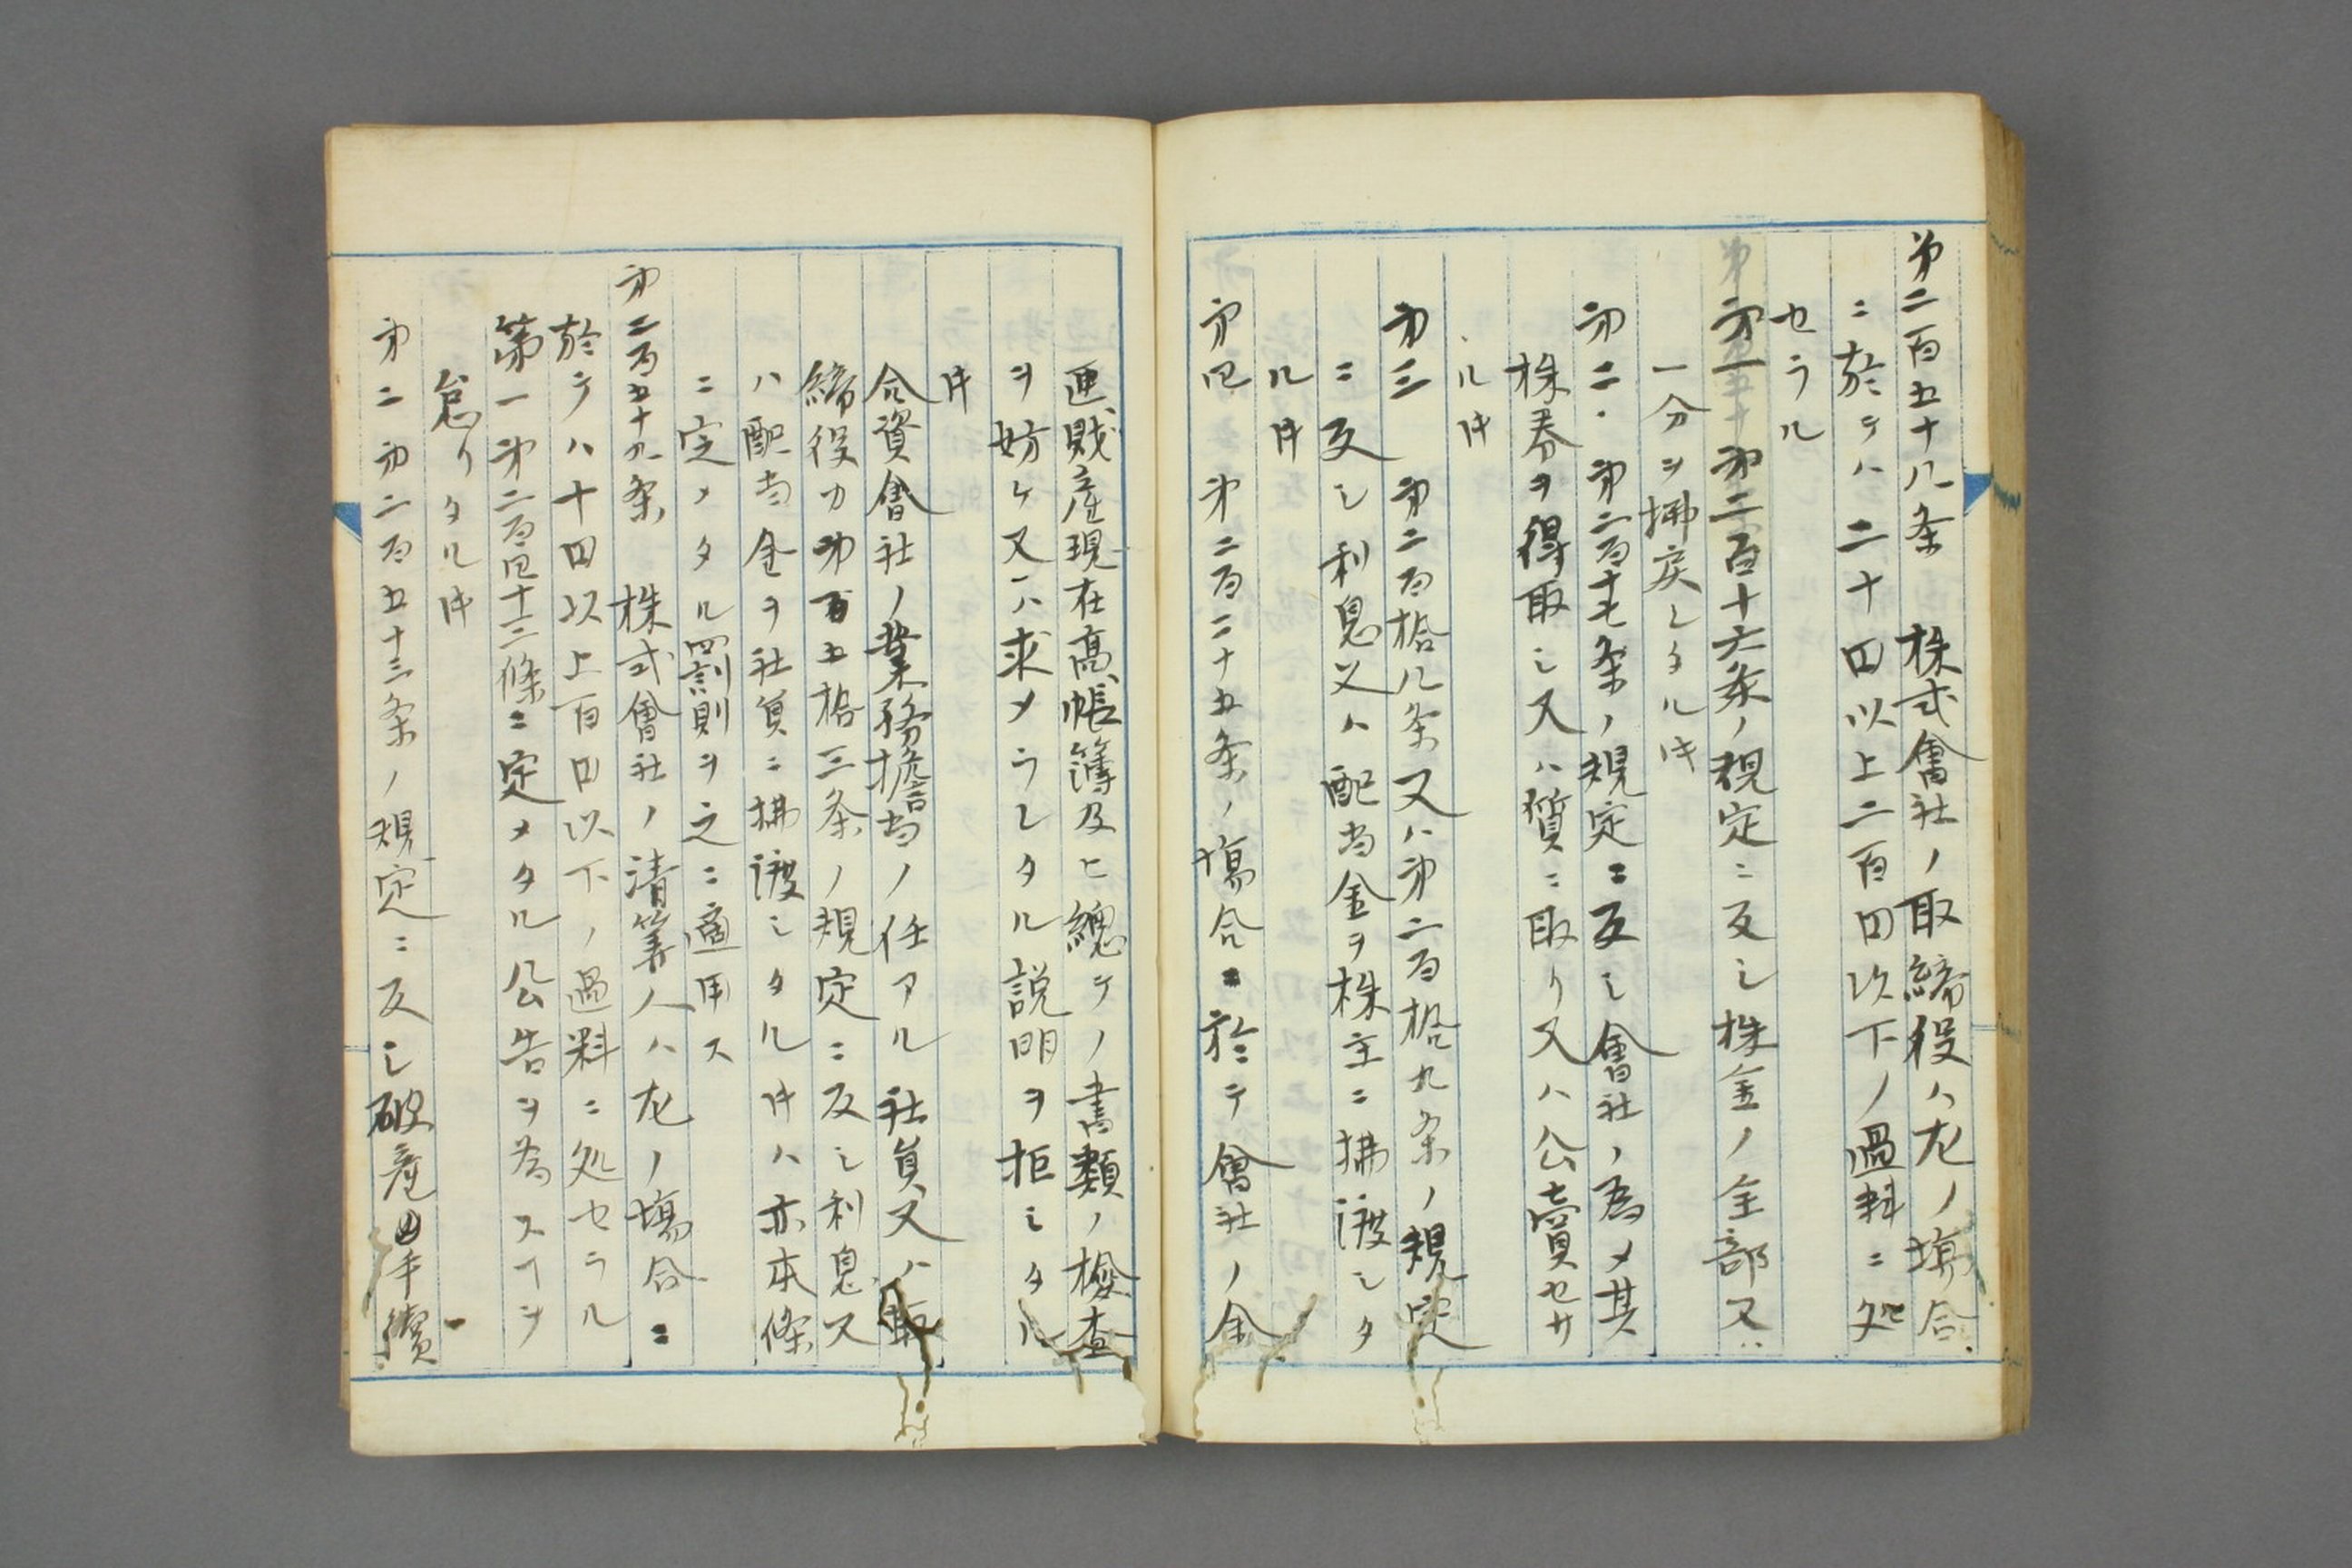 第二百五十八条 株式會社ノ取締役ハ左ノ塲合
ニ於テハ二十円以上二百円以下ノ過料ニ処
セラル
第一 第二百十六条ノ規定ニ反シ株金ノ全部又ハ
一分ヲ拂戻シタル片
第二 第二百十七条ノ規定ニ反シ會社ノ為メ其
株券ヲ得取シ又ハ質ニ取リ又ハ公賣セサ
ル片
第三 第二百拾八条又ハ第二百拾九条ノ規定
ニ反シ利息又ハ配当金ヲ株主ニ拂渡シタ
ル片
第四 第二百二十五条ノ塲合ニ於テ會社ノ金
匣財産現在高帳簿及ヒ總テノ書類ノ檢査
ヲ妨ケ又ハ求メラレタル説明ヲ拒シタル
片
合資會社ノ業務擔当ノ任アル社員又ハ取
締役カ第百五拾三条ノ規定ニ反シ利息又
ハ配当金ヲ社員ニ拂渡シタル片ハ亦本條
ニ定メタル罰則ヲ之ニ適用ス
第二百五十九条 株式會社ノ清筭人ハ左ノ塲合ニ
於テハ十円以上百円以下ノ過料ニ処セラル
第一 第二百四十三條ニ定メタル公告ヲ為スヿヲ
怠リタル片
第二 第二百五十三条ノ規定ニ反シ破産手續